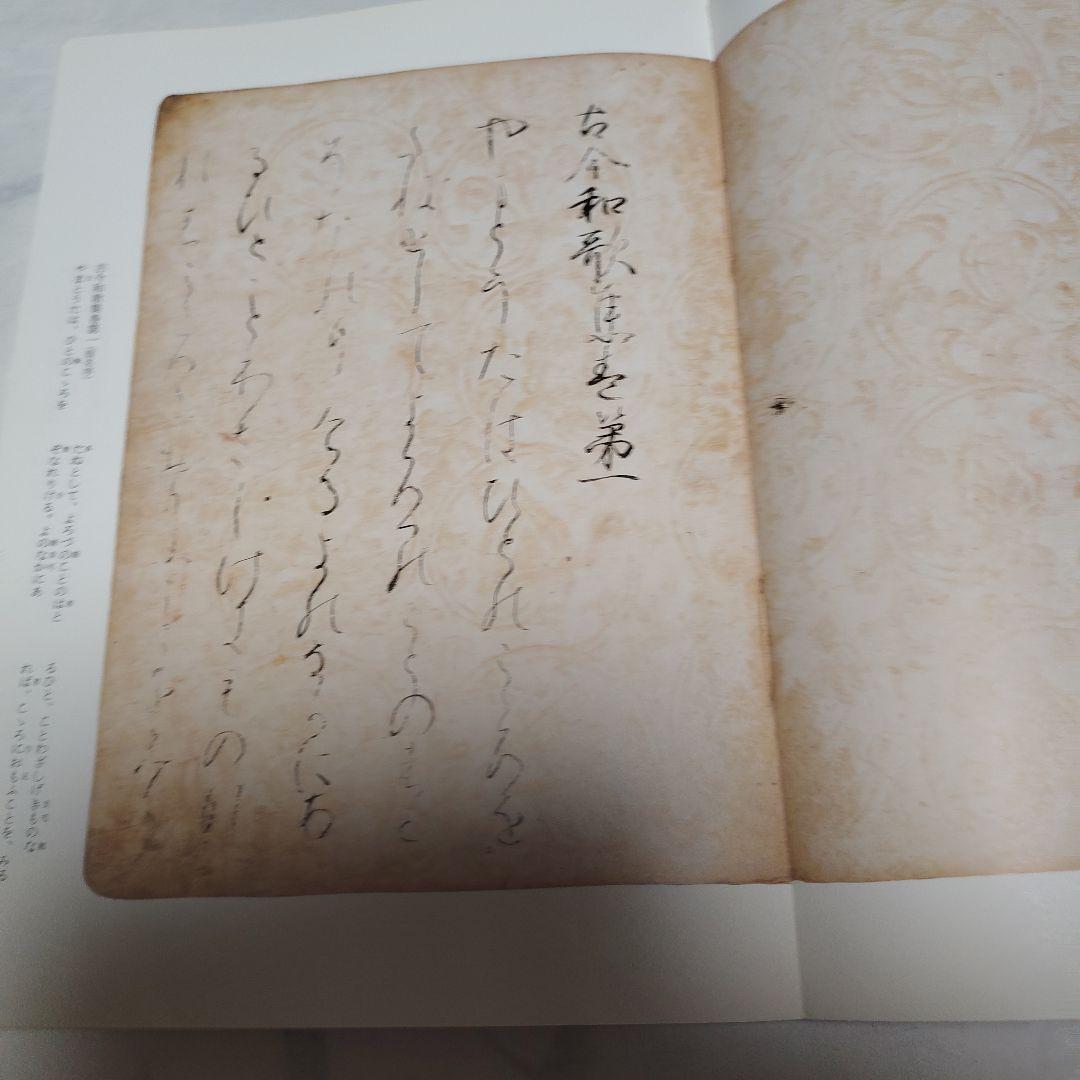 古今和歌集巻第一
やまとうたはひとのこゝろを
たねとしてよろつのことのはと
そなれりけるよのなかにあ
るひとことわさしけきものな
れはこゝろにおもふことを
古今和歌集巻第一
やまとうたは、ひとのこゝろを
たねとして、よろづのことのはと
ぞなれりける。よのなかにあ
るひと、ことわざしげきものな
れば、こゝろにおもふことを、みる